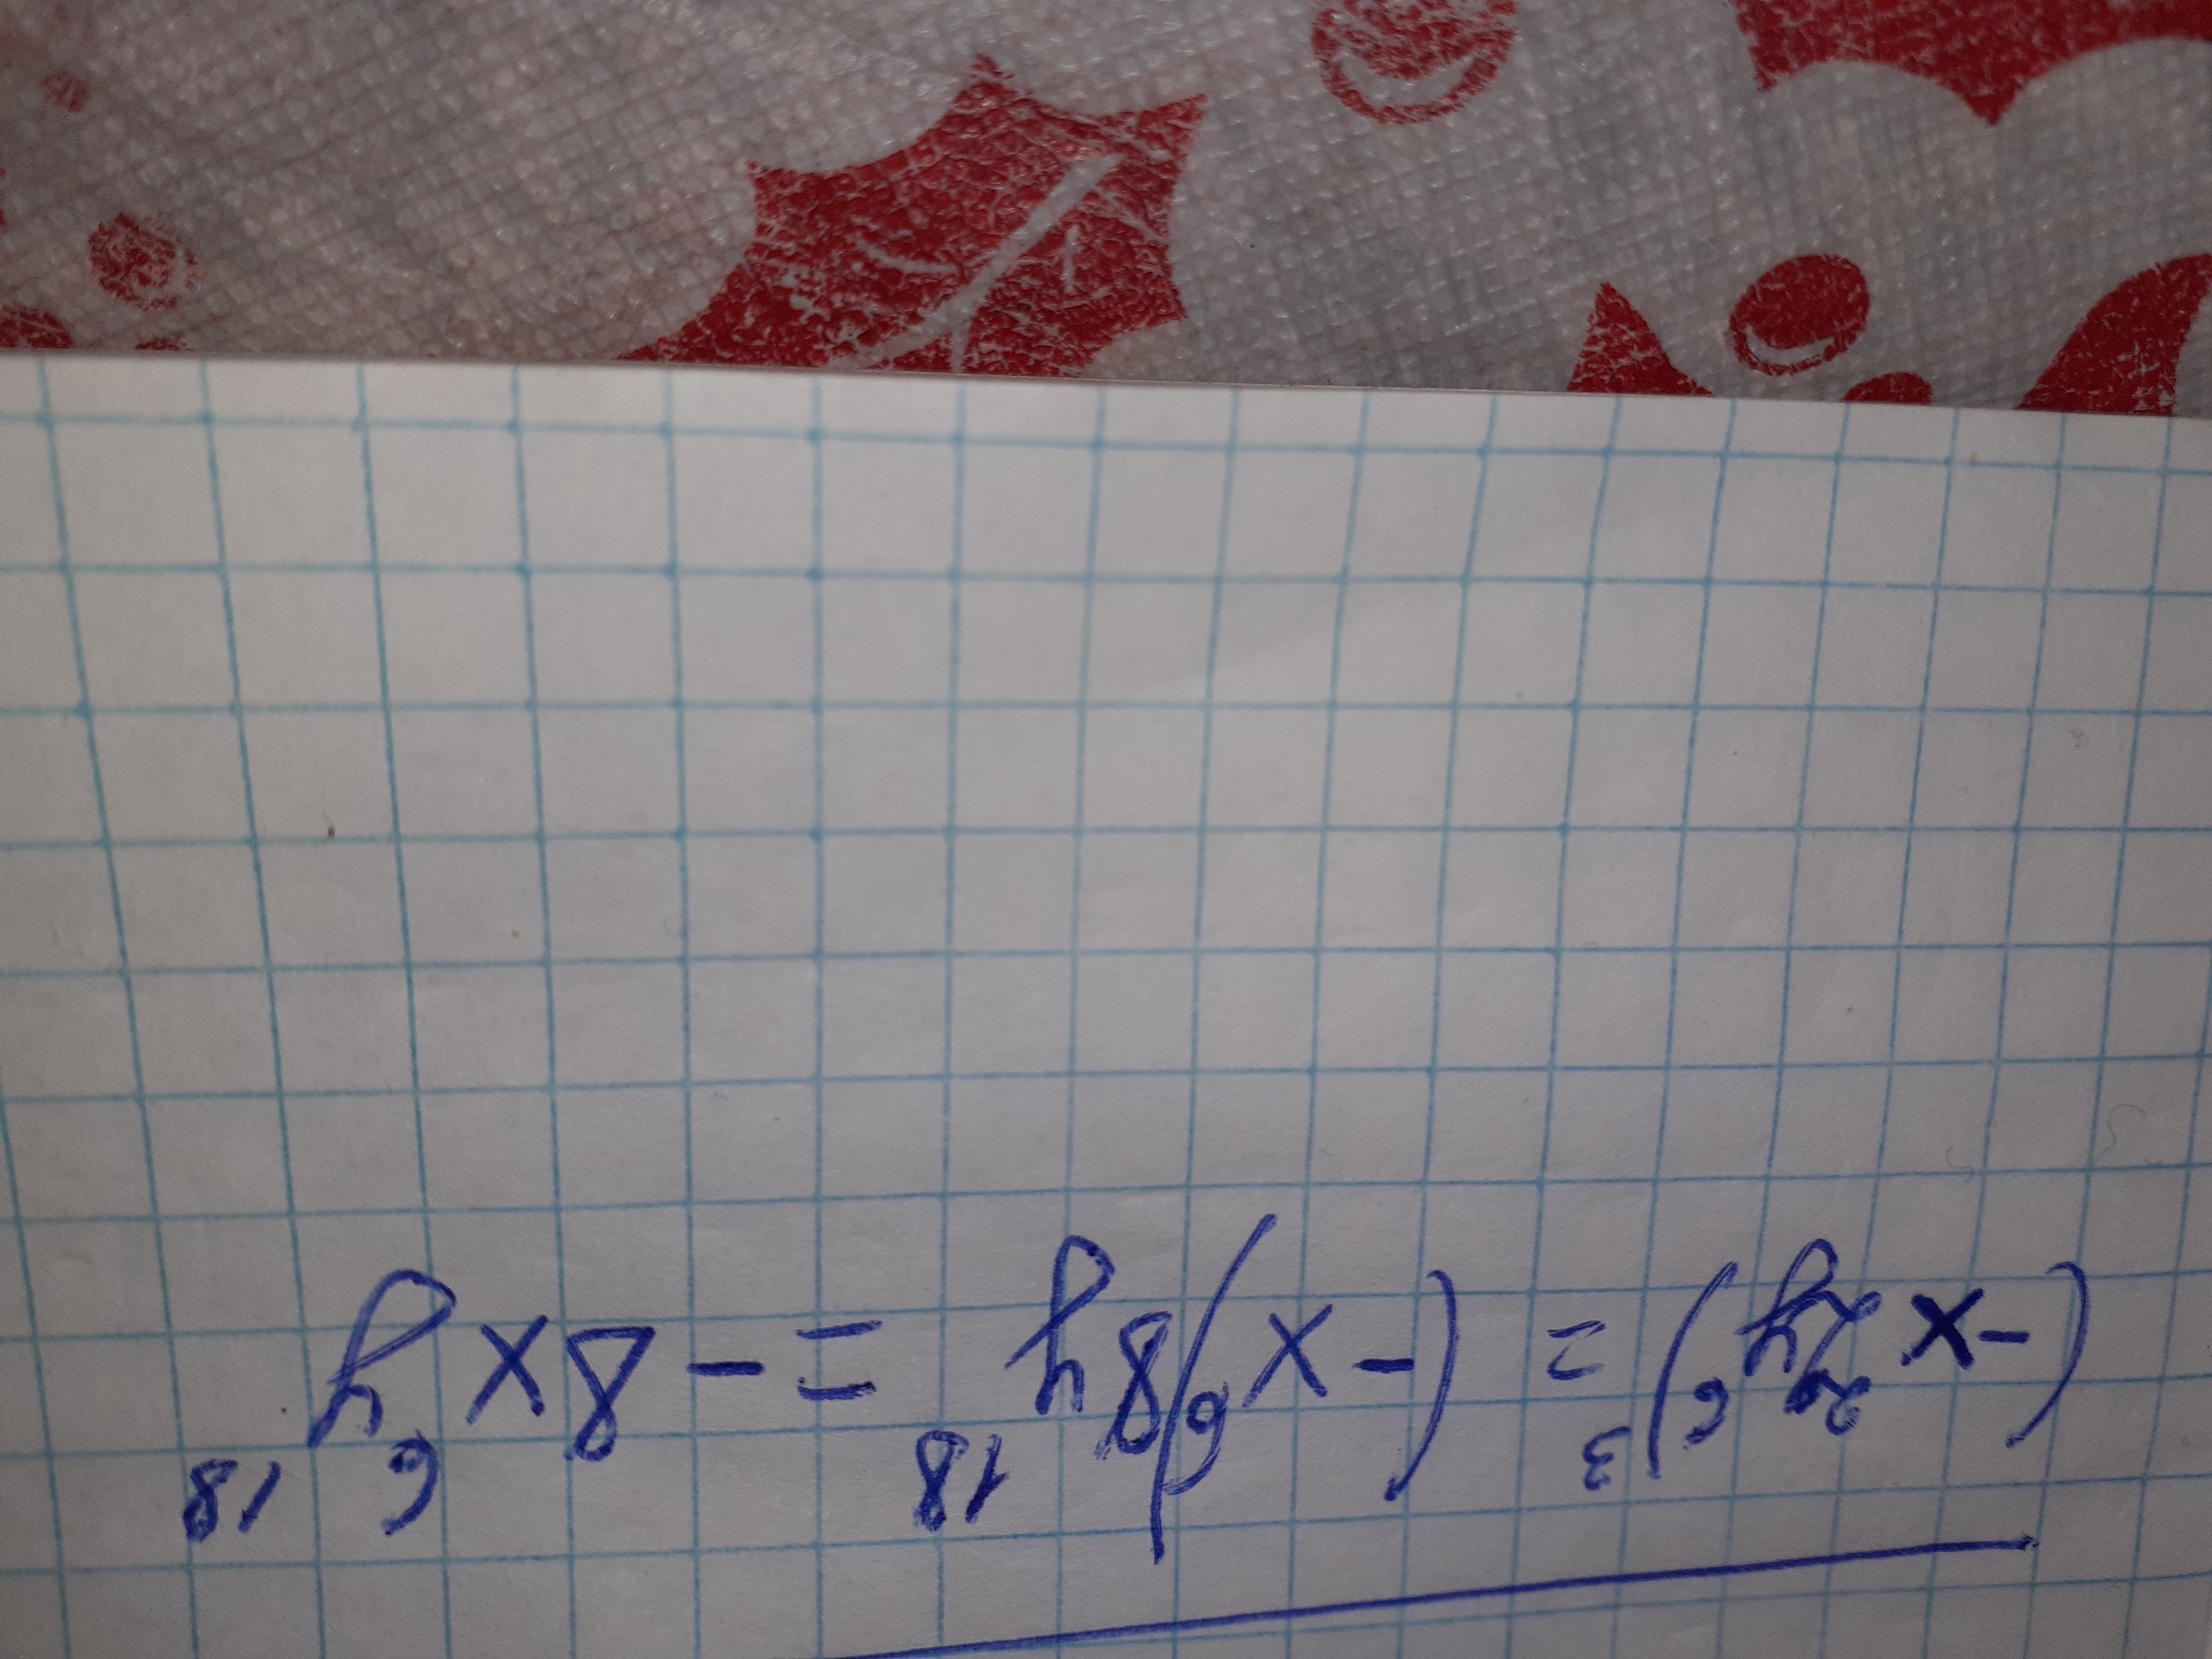 (-x²2y⁶)³ = (-x⁶)8y¹⁸ = -8x⁶y¹⁸